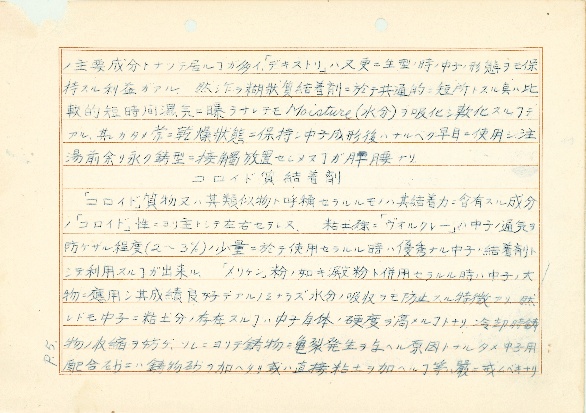 ノ主要成分トナツテ居ルヿガ多イ「デキストリン」ハ又更ニ生型ノ時ノ中子ノ形態ヲモ保
持スル利益ガアル。然シ乍ラ糊状質結着剤ニ於テ共通的ニ短所トスル臭ハ比
較的短時間濕気ニ曝ラサレテモMoisture(水分)ヲ吸化シ軟化スルヿデ
アル、其レガタメ常ニ乾燥状態ニ保持シ中子成形後ハナルベク早目ニ使用シ、注
湯前余リ永ク鋳型ニ接觸放置セシメヌヿガ肝腰ナリ
コロイド質結着剤
「コロイド」質物又ハ其類似物ト呼稱セラルルモノハ其結着力ニ含有スル成分
ノ「コロイド」性ニヨリ主トシテ左右セラレス、粘土様ニ「ヴィルクレー」ハ中子ノ通気ヲ
防ゲザル程度(2〜3%)ノ少量ニ於テ使用セラルル時ハ優秀ナル中子ノ結着剤ト
シテ利用スルヿガ出来ル、「メリケン」粉ノ如キ澱粉ト併用セラルル時ハ中子ノ大
物ニ應用シ其成績良好デアルノミナラズ水分ノ吸收ヲモ防止スル特徴アリ 然
レドモ中子ニ粘土分ノ存在スルヿハ中子自体ノ硬度ヲ高メルヿトナリ冷却時鋳
物ノ收縮ヲ妨ゲソレニヨリテ鋳物ニ亀裂発生ヲ与ヘル原因トナルタメ中子用
配合砂ニハ鋳物砂ヲ加ヘタリ或ハ直接粘土ヲ加ヘルヿ等ハ嚴ニ戒ムベキナリ
P5.